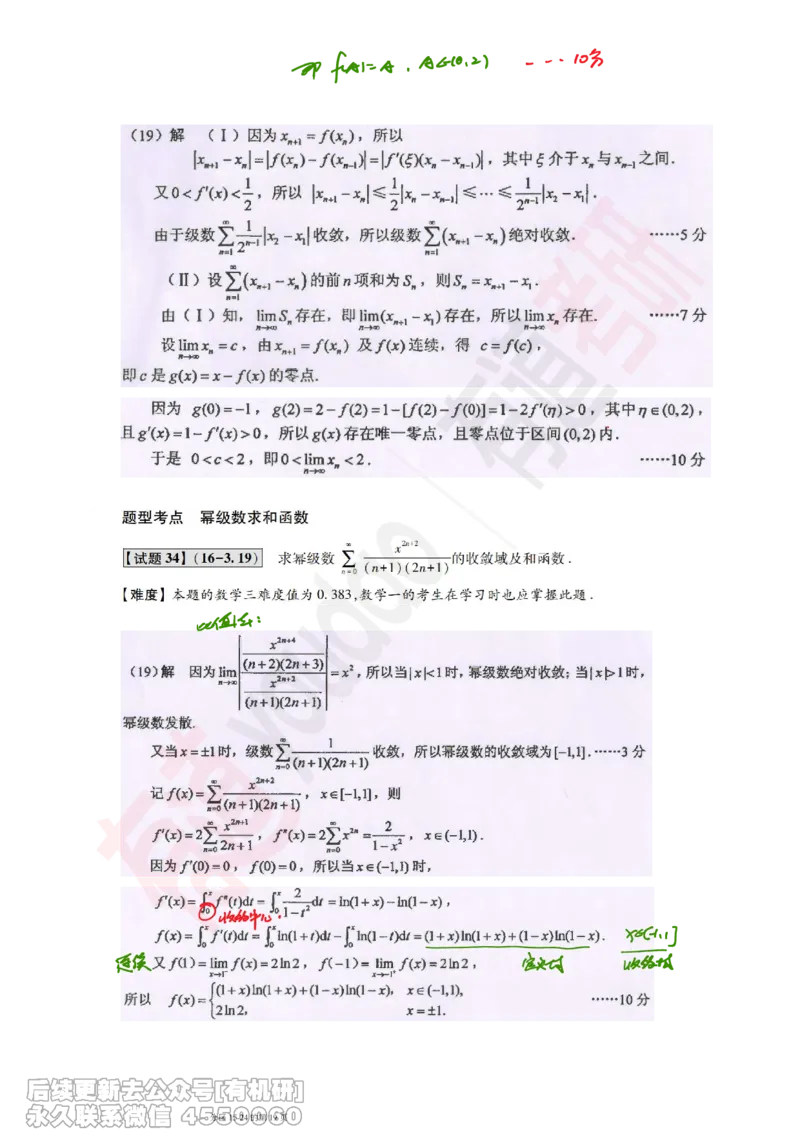 即 f(A)=A , A∈(0,2) ---10分
(19)解 (Ⅰ)因为 xₙ₊₁ = f(xₙ)，所以
|xₙ₊₁ − xₙ| = |f(xₙ) − f(xₙ₋₁)| = |f′(ξ)(xₙ − xₙ₋₁)|，其中ξ介于xₙ与xₙ₋₁之间.
又0 < f′(x) < 1/2，所以 |xₙ₊₁ − xₙ| ≤ 1/2|xₙ − xₙ₋₁| ≤ ⋯ ≤ 1/2ⁿ⁻¹|x₂ − x₁|.
由于级数∑_{n=1}^{∞} 1/2ⁿ⁻¹|x₂ − x₁|收敛，所以级数∑_{n=1}^{∞}(xₙ₊₁ − xₙ)绝对收敛. ……5分
(Ⅱ)设∑_{n=1}^{∞}(xₙ₊₁ − xₙ)的前n项和为Sₙ，则Sₙ = xₙ₊₁ − x₁.
由(Ⅰ)知，lim_{n→∞}Sₙ存在，即lim_{n→∞}(xₙ₊₁ − x₁)存在，所以lim_{n→∞}xₙ存在. ……7分
设lim_{n→∞}xₙ = c，由xₙ₊₁ = f(xₙ)及f(x)连续，得 c = f(c)，
即c是g(x) = x − f(x)的零点.
因为 g(0) = −1，g(2) = 2 − f(2) = 1 − [f(2) − f(0)] = 1 − 2f′(η) > 0，其中η∈(0,2)，
且g′(x) = 1 − f′(x) > 0，所以g(x)存在唯一零点，且零点位于区间(0,2)内.
于是 0 < c < 2，即0 < lim_{n→∞}xₙ < 2. ……10分
题型考点 幂级数求和函数
【试题34】(16−3.19) 求幂级数 ∑_{n=0}^{∞} x²ⁿ⁺²/((n+1)(2n+1)) 的收敛域及和函数.
【难度】本题的数学三难度值为0.383,数学一的考生在学习时也应掌握此题.
比值法:
(19)解 因为lim_{n→∞}|(x²ⁿ⁺⁴/((n+2)(2n+3)))/(x²ⁿ⁺²/((n+1)(2n+1)))| = x²，所以当|x|<1时，幂级数绝对收敛；当|x|>1时，
幂级数发散.
又当x = ±1时，级数∑_{n=0}^{∞} 1/((n+1)(2n+1)) 收敛，所以幂级数的收敛域为[−1,1]. ……3分
记f(x) = ∑_{n=0}^{∞} x²ⁿ⁺²/((n+1)(2n+1))，x∈[−1,1]，则
f′(x) = 2∑_{n=0}^{∞} x²ⁿ⁺¹/(2n+1)，f″(x) = 2∑_{n=0}^{∞}x²ⁿ = 2/(1−x²)，x∈(−1,1).
因为f′(0) = 0，f(0) = 0，所以当x∈(−1,1)时，
f′(x) = ∫₀ˣ f″(t)dt = ∫₀ˣ 2/(1−t²)dt = ln(1+x) − ln(1−x)，
收敛中心.
f(x) = ∫₀ˣ f′(t)dt = ∫₀ˣ ln(1+t)dt − ∫₀ˣ ln(1−t)dt = (1+x)ln(1+x) + (1−x)ln(1−x). x∈[-1,1]
连续 又f(1) = lim_{x→1⁻} f(x) = 2ln2，f(−1) = lim_{x→−1⁺} f(x) = 2ln2， 定义域 收敛域
所以 f(x) = { (1+x)ln(1+x) + (1−x)ln(1−x)， x∈(−1,1),
2ln2， x = ±1. ……10分
有道 youdao 考研
后续更新去公众号[有机研]
永久联系微信 4550000